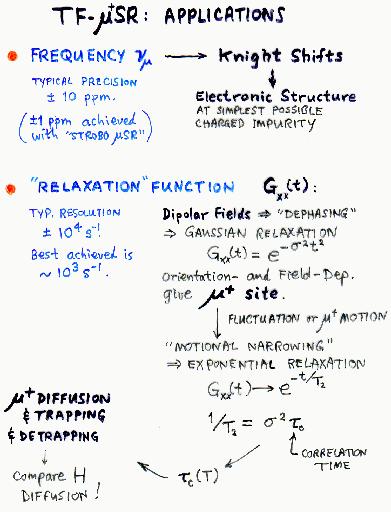 TF-μ⁺SR: APPLICATIONS
• FREQUENCY νμ → Knight Shifts
TYPICAL PRECISION
± 10 ppm.
(±1 ppm achieved
with "STROBO μSR")
↓
Electronic Structure
AT SIMPLEST POSSIBLE
CHARGED IMPURITY
• "RELAXATION" FUNCTION Gxx(t):
TYP. RESOLUTION
± 10⁴ s⁻¹
Best achieved is
~ 10³ s⁻¹.
Dipolar Fields ⇒ "DEPHASING"
⇒ GAUSSIAN RELAXATION
Gxx(t) = e^{-σ²t²}
Orientation- and Field-Dep.
give μ⁺ site.
↓ FLUCTUATION or μ⁺ MOTION
"MOTIONAL NARROWING"
⇒ EXPONENTIAL RELAXATION
Gxx(t) → e^{-t/T₂}
1/T₂ = σ² τc
CORRELATION
TIME
τc(T)
μ⁺ DIFFUSION
& TRAPPING
& DETRAPPING
↓
Compare H
DIFFUSION!